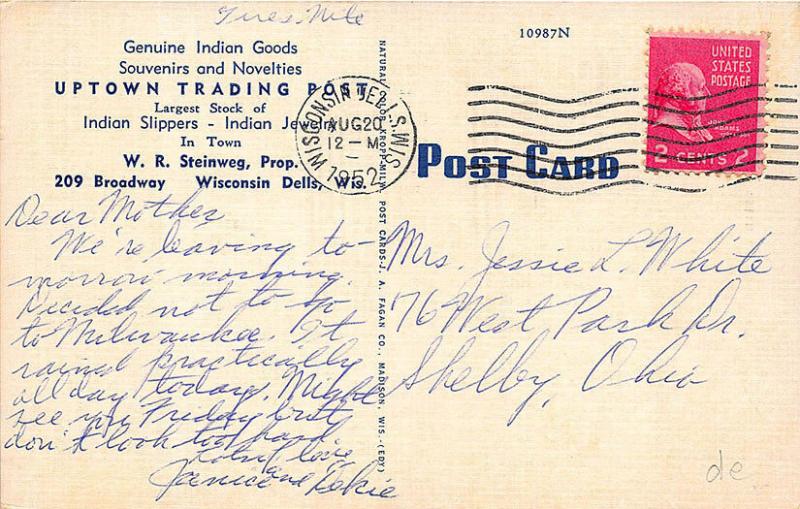 Tues. Nite
Genuine Indian Goods
Souvenirs and Novelties
UPTOWN TRADING POST
Largest Stock of
Indian Slippers - Indian Jewelry
In Town
W. R. Steinweg, Prop.
209 Broadway Wisconsin Dells, Wis.
Dear Mother,
We're leaving to-
morrow morning.
Decided not to go
to Milwaukee. It
rained practically
all day today. Might
see you Friday but
don't look too hard
Lots of love
Janice and
NATURAL COLOR KROPP-MILW. POST CARDS-J. A. FAGAN CO., MADISON, WIS.-(EDY)
10987N
WISCONSIN DELLS, WIS.
AUG 20
12 - M
1952
UNITED
STATES
POSTAGE
JOHN
ADAMS
2 CENTS 2
POST CARD
Mrs. Jessie L. White
76 West Park Dr.
Shelby, Ohio
de